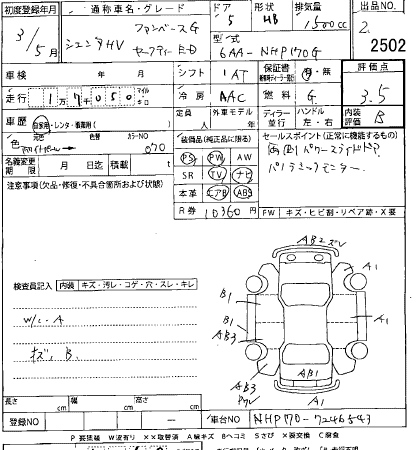 初度登録年月 通称車名・グレード ドア 形状 排気量 出品NO
3/5月 シエンタHV ファンベースG セーフティーE-D 5 HB 1500cc 2
型式 6AA-NHP170G 2502
車検 年 月 シフト 1AT 保証書 有・無 評価点
走行 17050 マイル キロ 冷房 AAC 燃料 G 3.5
車歴 自家用・レンタ・ 定員 人 外車モデル 年 ディーラー 並行 ハンドル 左・右 内装評価 B
色 カラーNO 070 装備品(純正品に限る) セールスポイント(正常に機能するもの)
PS PW AW 両側パワースライドドア
名義変更期限 月 日迄 積載 t SR TV ナビ パノラミックモニター
注意事項(欠品・修復・不具合箇所および状態) 本革 エアB ABS
R券 10360円 FW キズ・ヒビ割・リペア跡・X要
検査員記入 内装 キズ・汚レ・コゲ・穴・スレ・キレ
AB2
A1 A1
B1
W/C. A B1 A1
AB3
キズ. B.
AB1
AB3 A1
長さ cm 幅 cm 高さ cm
登録NO ー 車台NO NHP170-7246543
P 要塗装 W波有り XX取替済 A線キズ Bヘコミ Sさび X要交換 C腐食